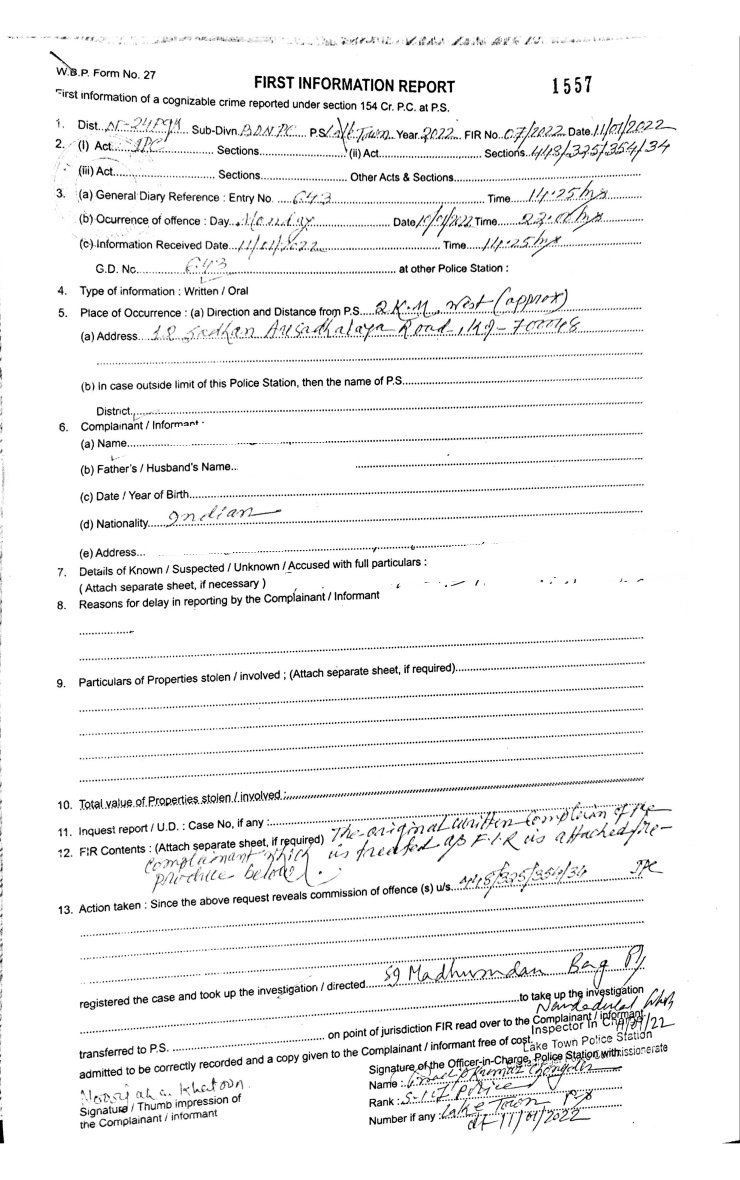 W.B.P. Form No. 27
FIRST INFORMATION REPORT 1557
First information of a cognizable crime reported under section 154 Cr. P.C. at P.S.
1. Dist. N-24PGS Sub-Divn. BDN PC P.S. Lake Town Year 2022 FIR No. 07/2022 Date 11/01/2022
2. (I) Act IPC Sections (ii) Act Sections 448/325/354/34
(iii) Act Sections Other Acts & Sections
3. (a) General Diary Reference : Entry No. 643 Time 14.25 hrs
(b) Ocurrence of offence : Day Monday Date 10/01/2022 Time
(c) Information Received Date 11/01/2022 Time 14.25 hrs
G.D. No. 643 at other Police Station :
4. Type of information : Written / Oral
5. Place of Occurrence : (a) Direction and Distance from P.S. 2 K.M, West (approx)
(a) Address Road,
(b) In case outside limit of this Police Station, then the name of P.S.
District
6. Complainant / Informant
(a) Name
(b) Father's / Husband's Name
(c) Date / Year of Birth
(d) Nationality Indian
(e) Address
7. Details of Known / Suspected / Unknown / Accused with full particulars :
( Attach separate sheet, if necessary )
8. Reasons for delay in reporting by the Complainant / Informant
9. Particulars of Properties stolen / involved ; (Attach separate sheet, if required)
10. Total value of Properties stolen / involved :
11. Inquest report / U.D. : Case No, if any :
12. FIR Contents : (Attach separate sheet, if required) The original written of the
complainant which is treated as F.I.R is attached
produce below.
13. Action taken : Since the above request reveals commission of offence (s) u/s. 448/325/354/34 IPC
registered the case and took up the investigation / directed SI Madhusudan Bag
to take up the investigation
transferred to P.S. on point of jurisdiction FIR read over to the Complainant / informant
admitted to be correctly recorded and a copy given to the Complainant / informant free of cost.
Inspector In Charge
Lake Town Police Station
Signature of the Officer-in-Charge, Police Station, with
Name :
Rank : S.I of Police
Number if any : Lake Town PS
dt 11/01/2022
Khatoon
Signature / Thumb impression of
the Complainant / informant